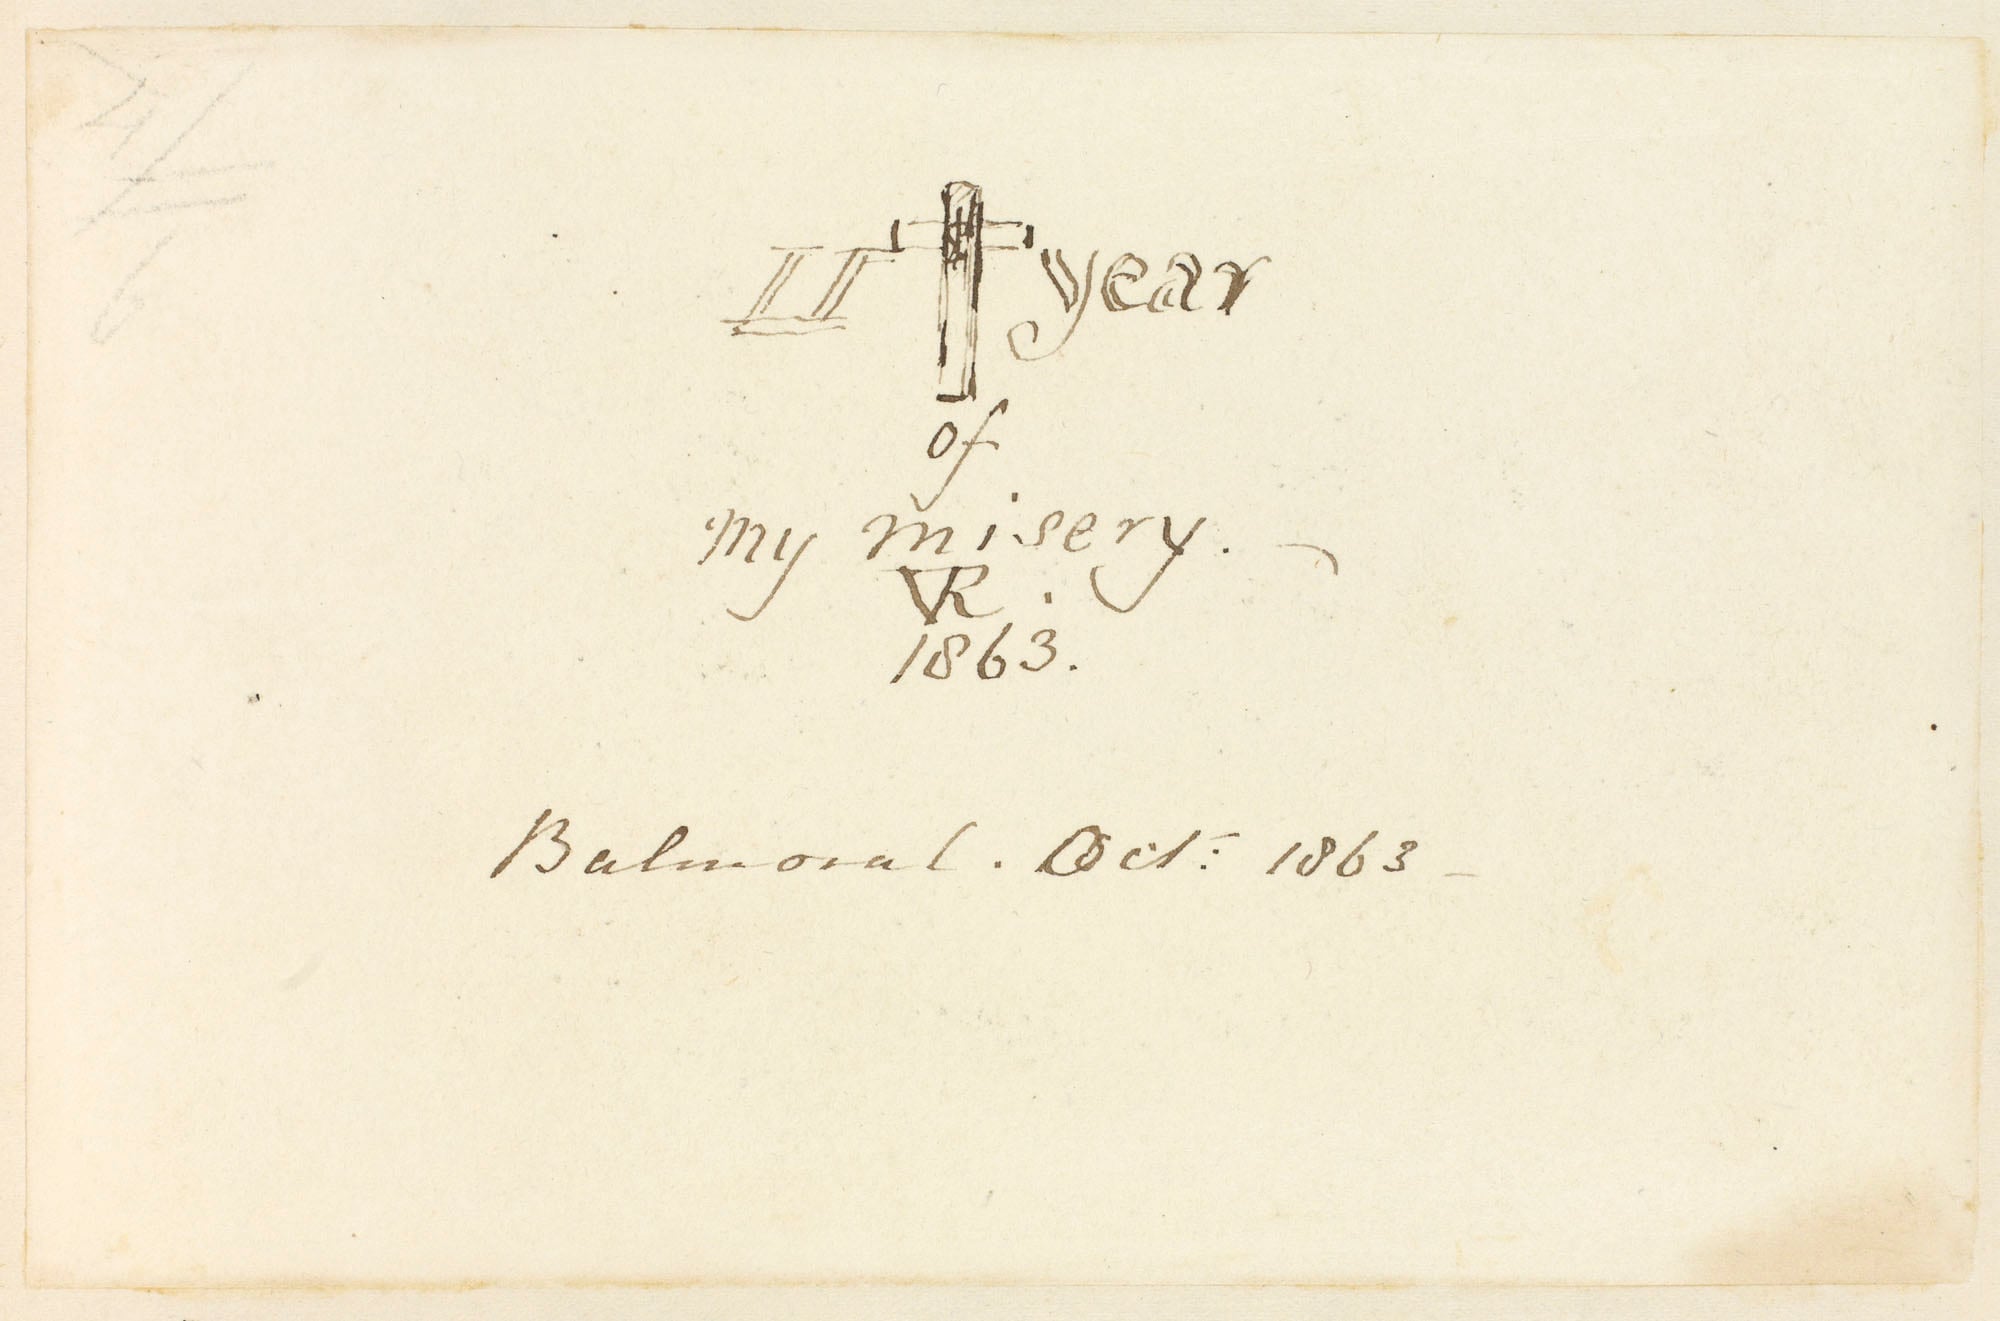 II year
of
my misery.
VR.
1863.
Balmoral. Oct: 1863